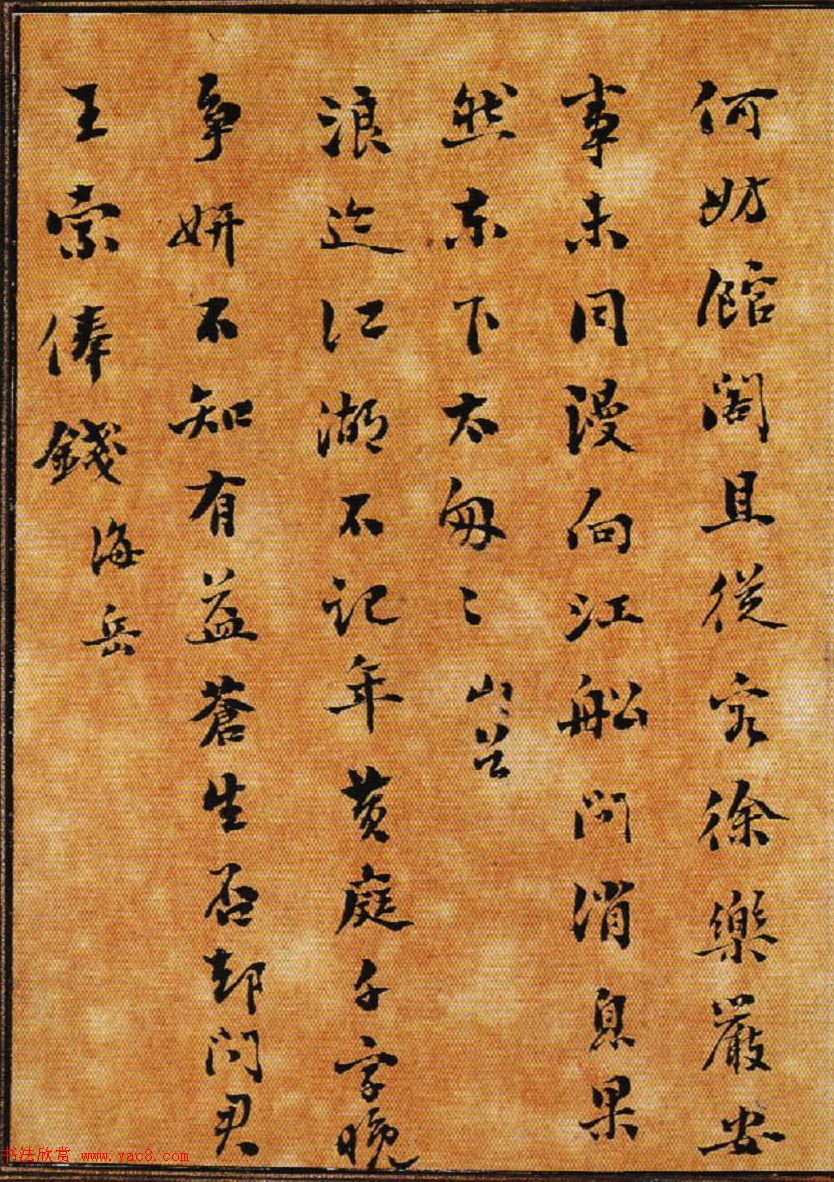 何妨館閣且從容徐樂嚴安
事未同漫向江船問消息果
然東下太匆〻山谷
浪迹江湖不記年黄庭千字晚
爭妍不知有益蒼生否却問君
王索俸錢海岳
书法欣赏 www.yac8.com